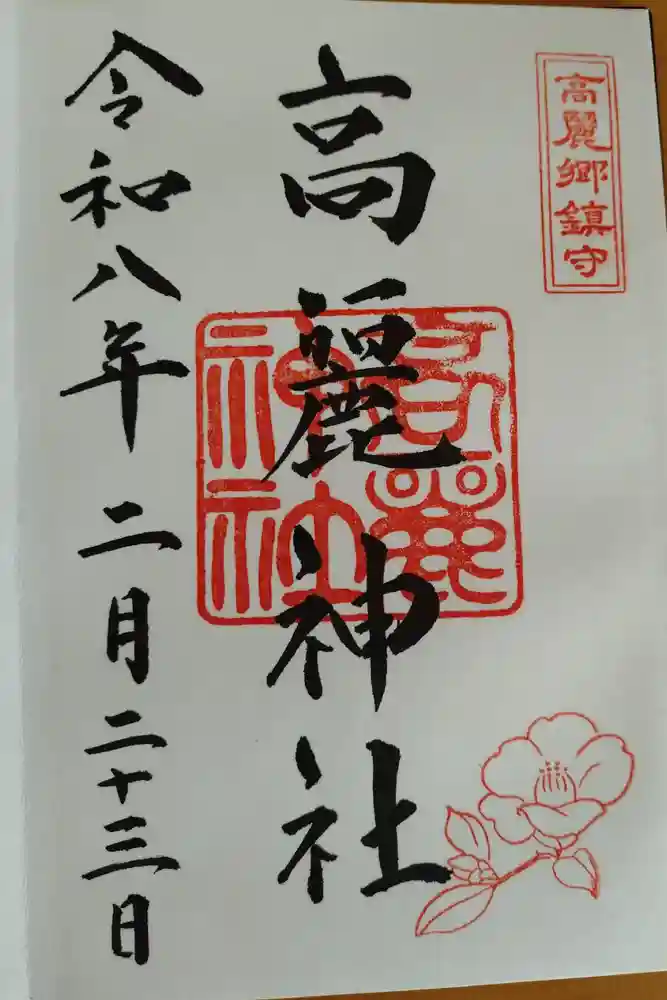 高麗郷鎮守
高麗神社
高麗神社
令和八年 二月二十三日